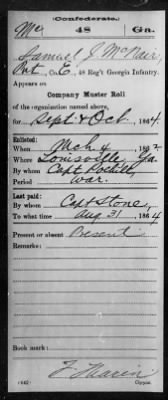 Confederate.
Mc 48 Ga.
Samuel J. McNair
Pvt, Co. E, 48 Reg't Georgia Infantry.
Appears on
Company Muster Roll
of the organization named above,
for Sept & Oct, 1864.
Enlisted:
When Mch 4, 1862
Where Louisville, Ga.
By whom Capt Polhill,
Period War.
Last paid:
By whom Capt Stone,
To what time Aug 31, 1864
Present or absent Present
Remarks:
(642)
Copyist.